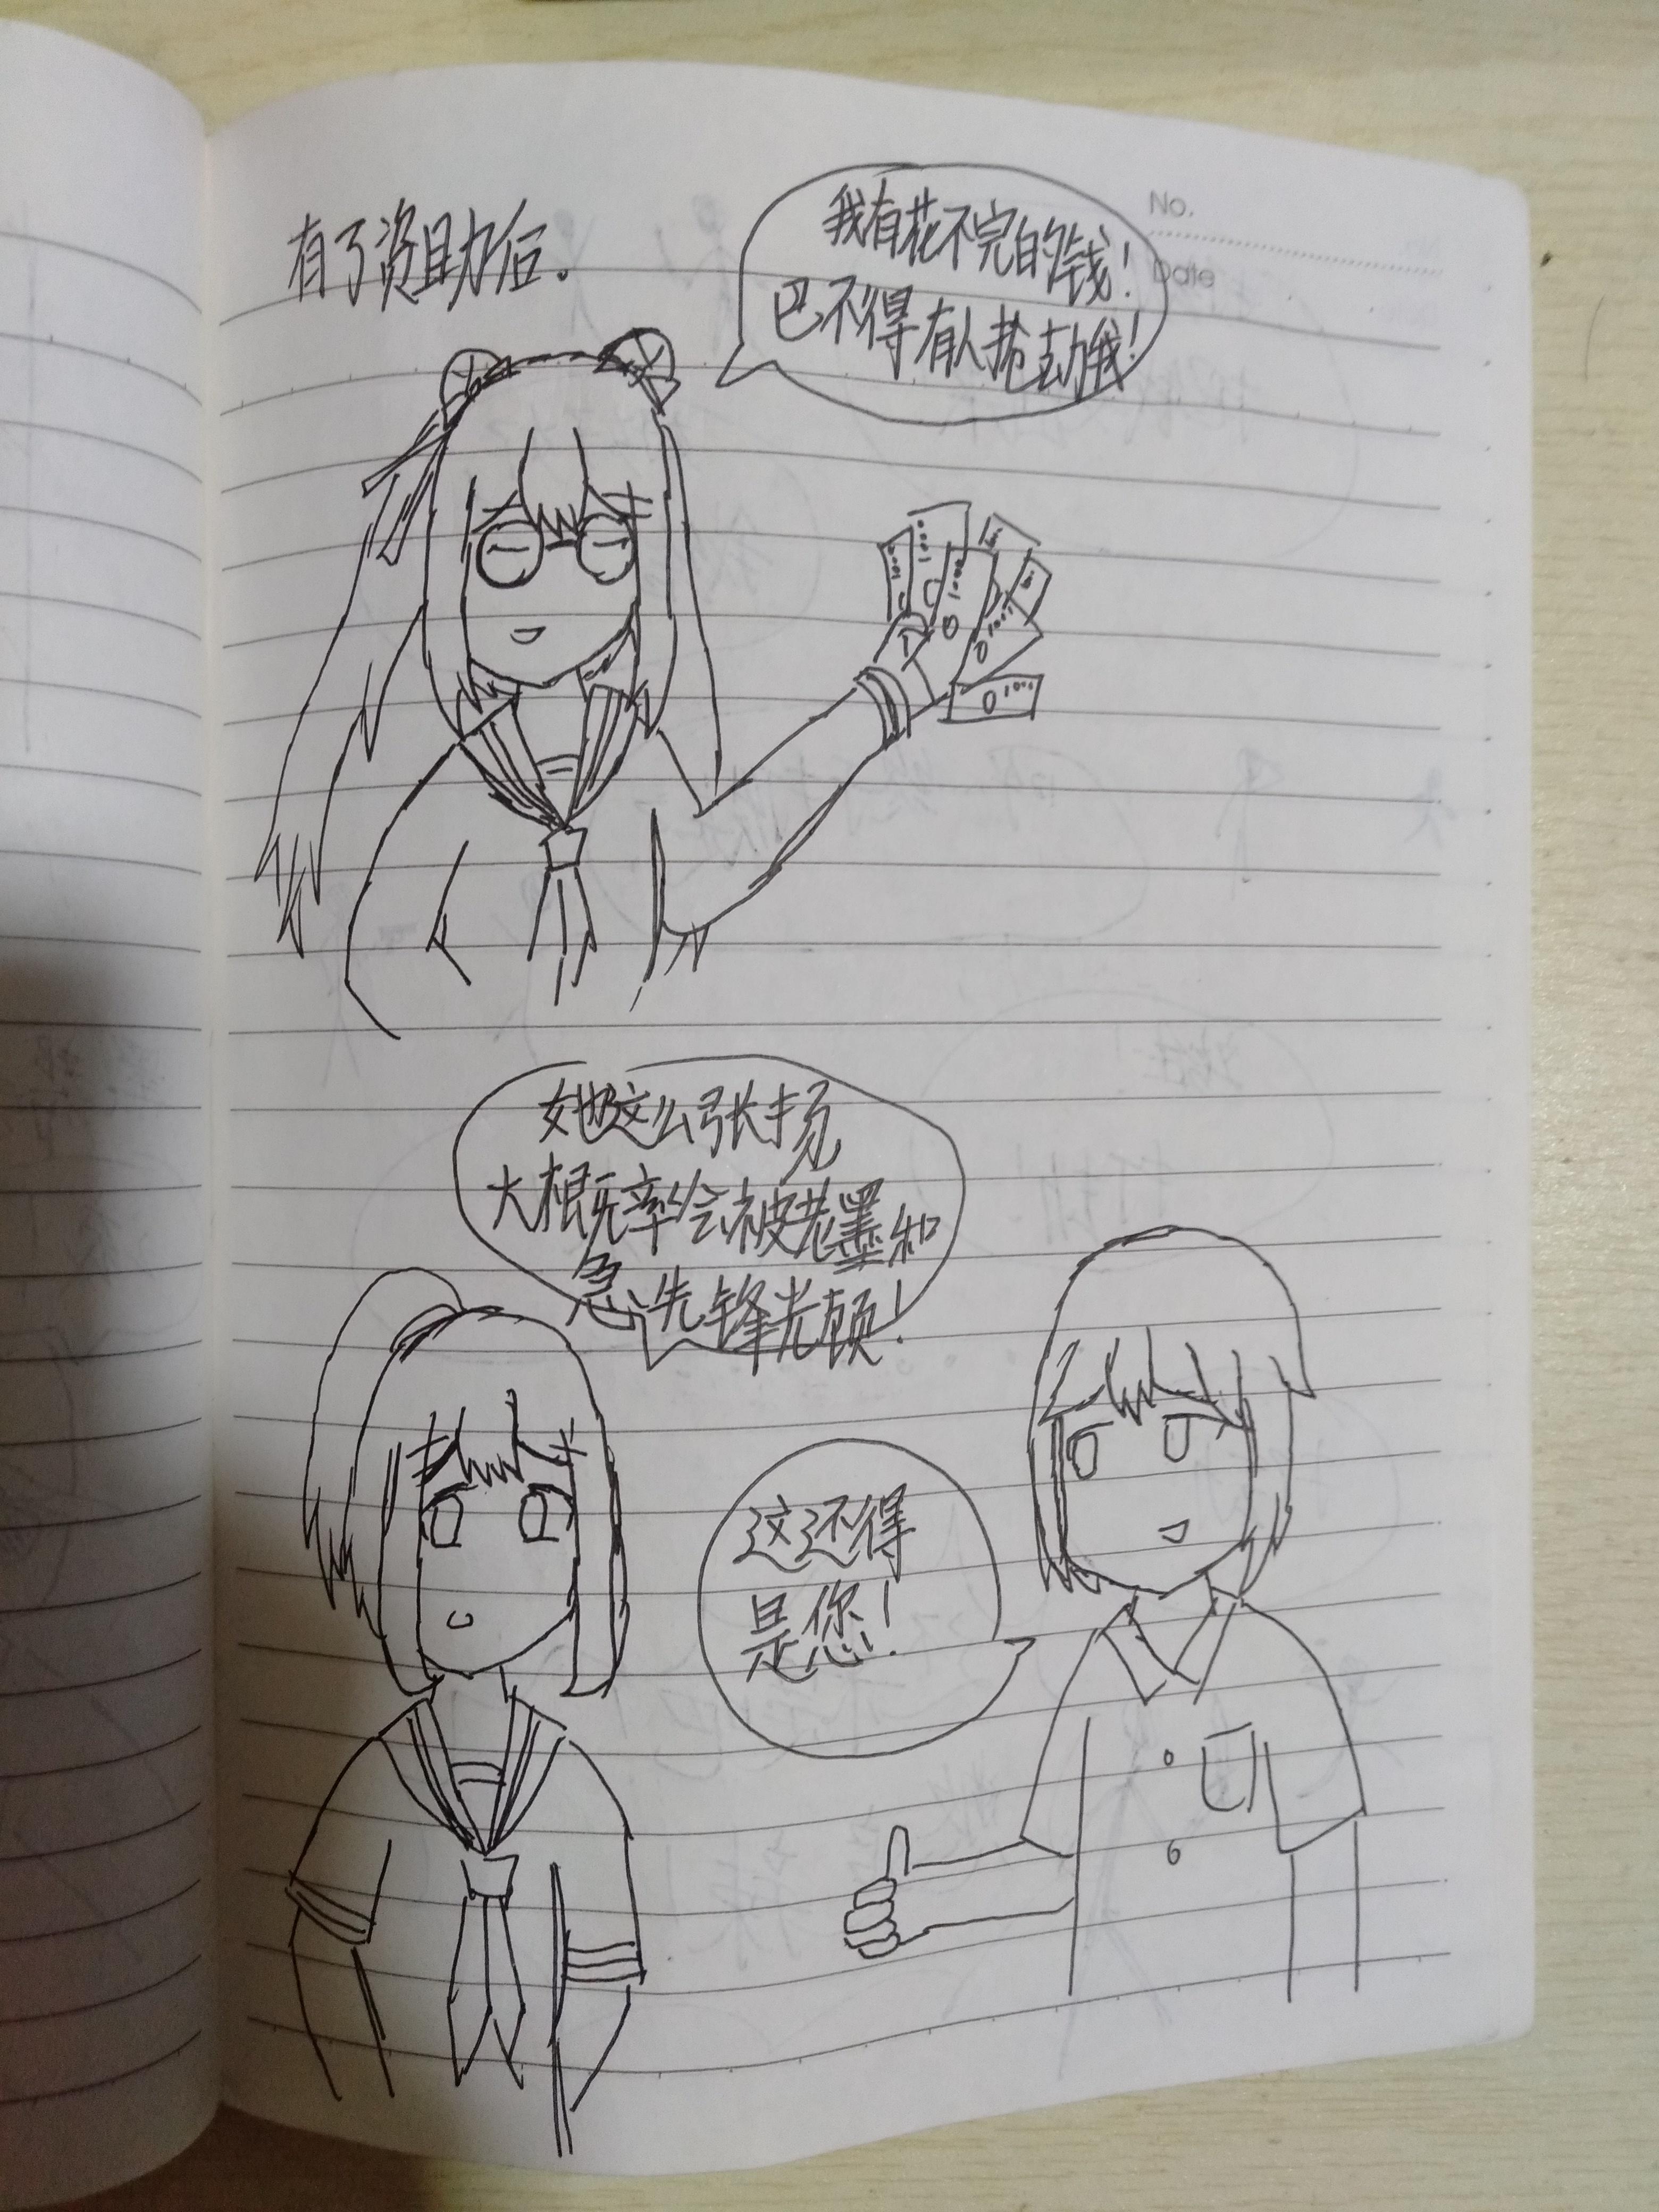 No.
Date
有了资助后。
我有花不完的钱!
巴不得有人抢劫我!
她这么张扬
大概率会被老墨和
急先锋光顾!
这还得
是您!